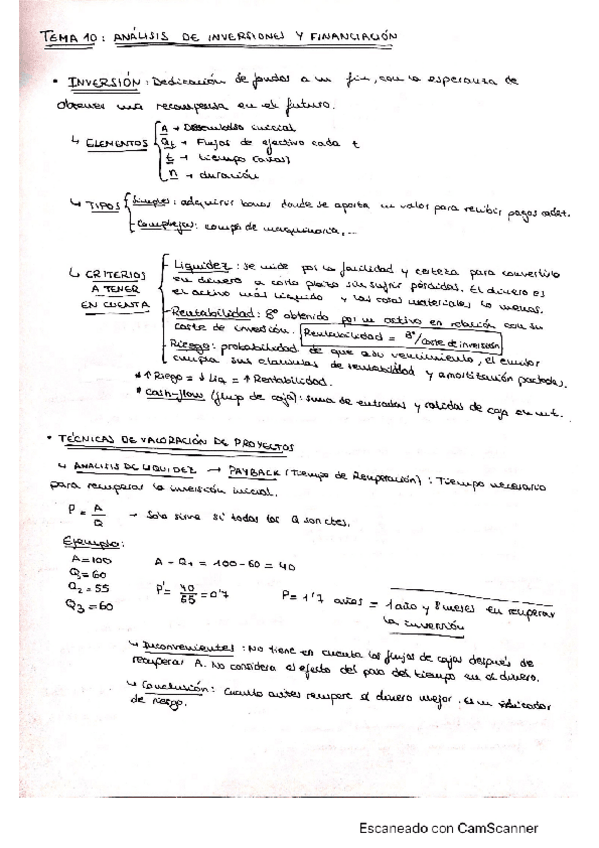 TEMA 10: ANÁLISIS DE INVERSIONES Y FINANCIACIÓN
• INVERSIÓN: Dedicación de fondos a un fin, con la esperanza de
obtener una recompensa en el futuro.
↳ ELEMENTOS
A → Desembolso inicial
Qt → Flujos de efectivo cada t
t → tiempo (años)
n → duración
↳ TIPOS
Simples: adquirir bonos donde se aporta un valor para recibir pagos cadat.
Complejas: compra de maquinaria,...
↳ CRITERIOS
A TENER
EN CUENTA
Liquidez: se mide por la facilidad y certeza para convertirlo
en dinero a corto plazo sin sufrir pérdidas. El dinero es
el activo más líquido y las cosas materiales lo menos.
Rentabilidad: Bº obtenido por un activo en relación con su
coste de inversión. Rentabilidad = Bº/coste de inversión
Riesgo: probabilidad de que a su vencimiento, el emisor
cumpla sus cláusulas de rentabilidad y amortización pactadas.
* ↑ Riesgo = ↓ Liq = ↑ Rentabilidad.
* Cash-flow (flujo de caja): suma de entradas y salidas de caja en un t.
• TÉCNICAS DE VALORACIÓN DE PROYECTOS
↳ ANÁLISIS DE LIQUIDEZ → PAYBACK (Tiempo de Recuperación): Tiempo necesario
para recuperar la inversión inicial.
P = A/Q → Solo sirve si todos los Q son ctes.
Ejemplo:
A=100
Q1=60
Q2=55
Q3=60
A - Q1 = 100-60 = 40
P' = 40/55 = 0'7
P= 1'7 años = 1 año y 8 meses en recuperar
la inversión
↳ Inconvenientes: No tiene en cuenta los flujos de cajas después de
recuperar A. No considera el efecto del paso del tiempo en el dinero.
↳ Conclusión: Cuanto antes recupere el dinero mejor. Es un indicador
de riesgo.
Escaneado con CamScanner